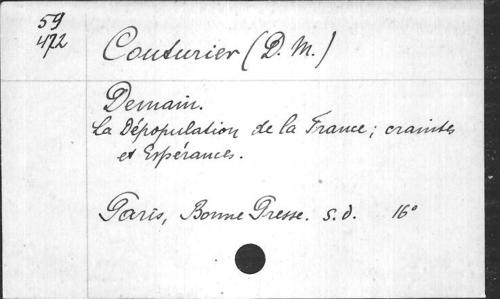 59
472
Couturier (D. M.)
Demain.
La Dépopulation de la France; craintes
et Espérances.
Paris, Bonne Presse. S. d. 16°